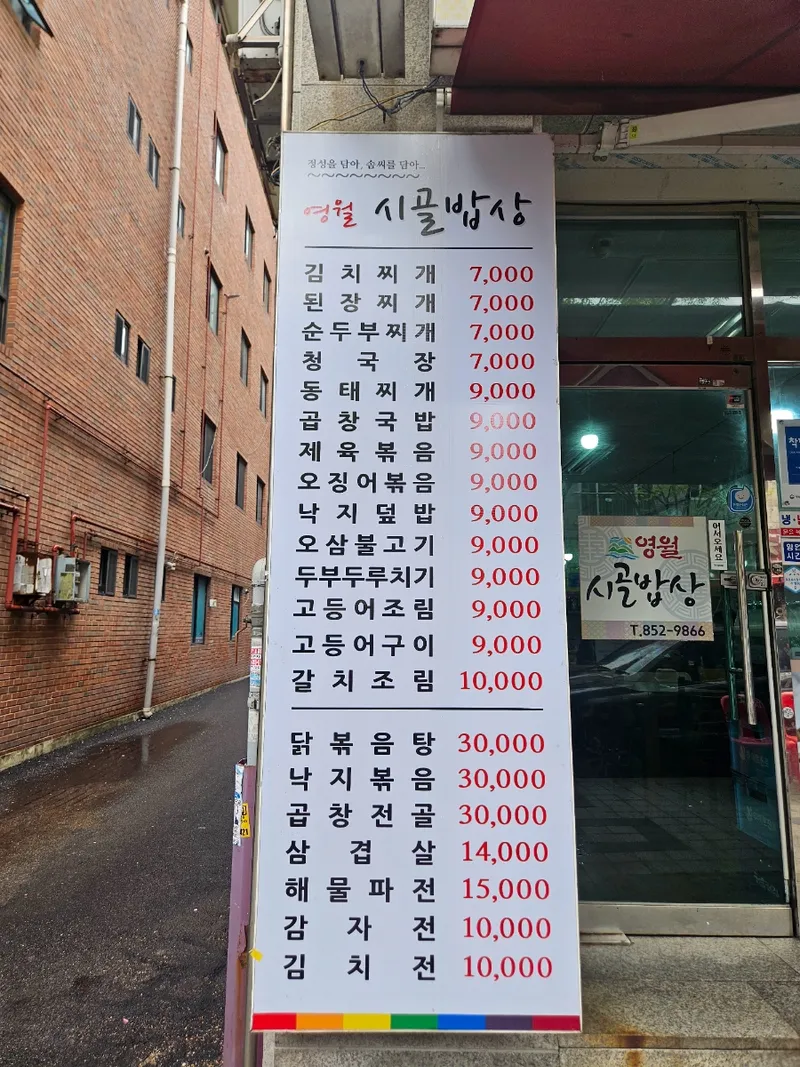 정성을 담아, 솜씨를 담아...
영월 시골밥상
김치찌개 7,000
된장찌개 7,000
순두부찌개 7,000
청국장 7,000
동태찌개 9,000
곱창국밥 9,000
제육볶음 9,000
오징어볶음 9,000
낙지덮밥 9,000
오삼불고기 9,000
두부두루치기 9,000
고등어조림 9,000
고등어구이 9,000
갈치조림 10,000
닭볶음탕 30,000
낙지볶음 30,000
곱창전골 30,000
삼겹살 14,000
해물파전 15,000
감자전 10,000
김치전 10,000
영월
시골밥상
T.852-9866
어서오세요